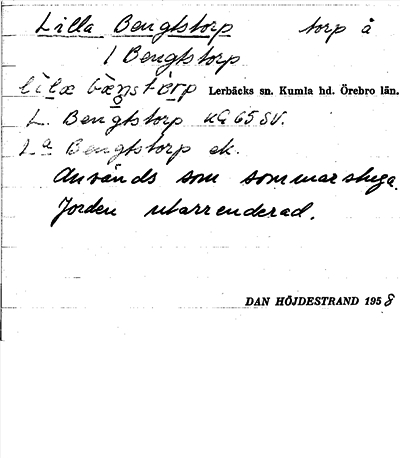 Lilla Bengtstorp torp å
1 Bengtstorp
Lerbäcks sn. Kumla hd. Örebro län.
L. Bengtstorp KG 65 SV.
La Bengtstorp ek.
Används som sommarstuga.
Jorden utarrenderad.
DAN HÖJDESTRAND 1958